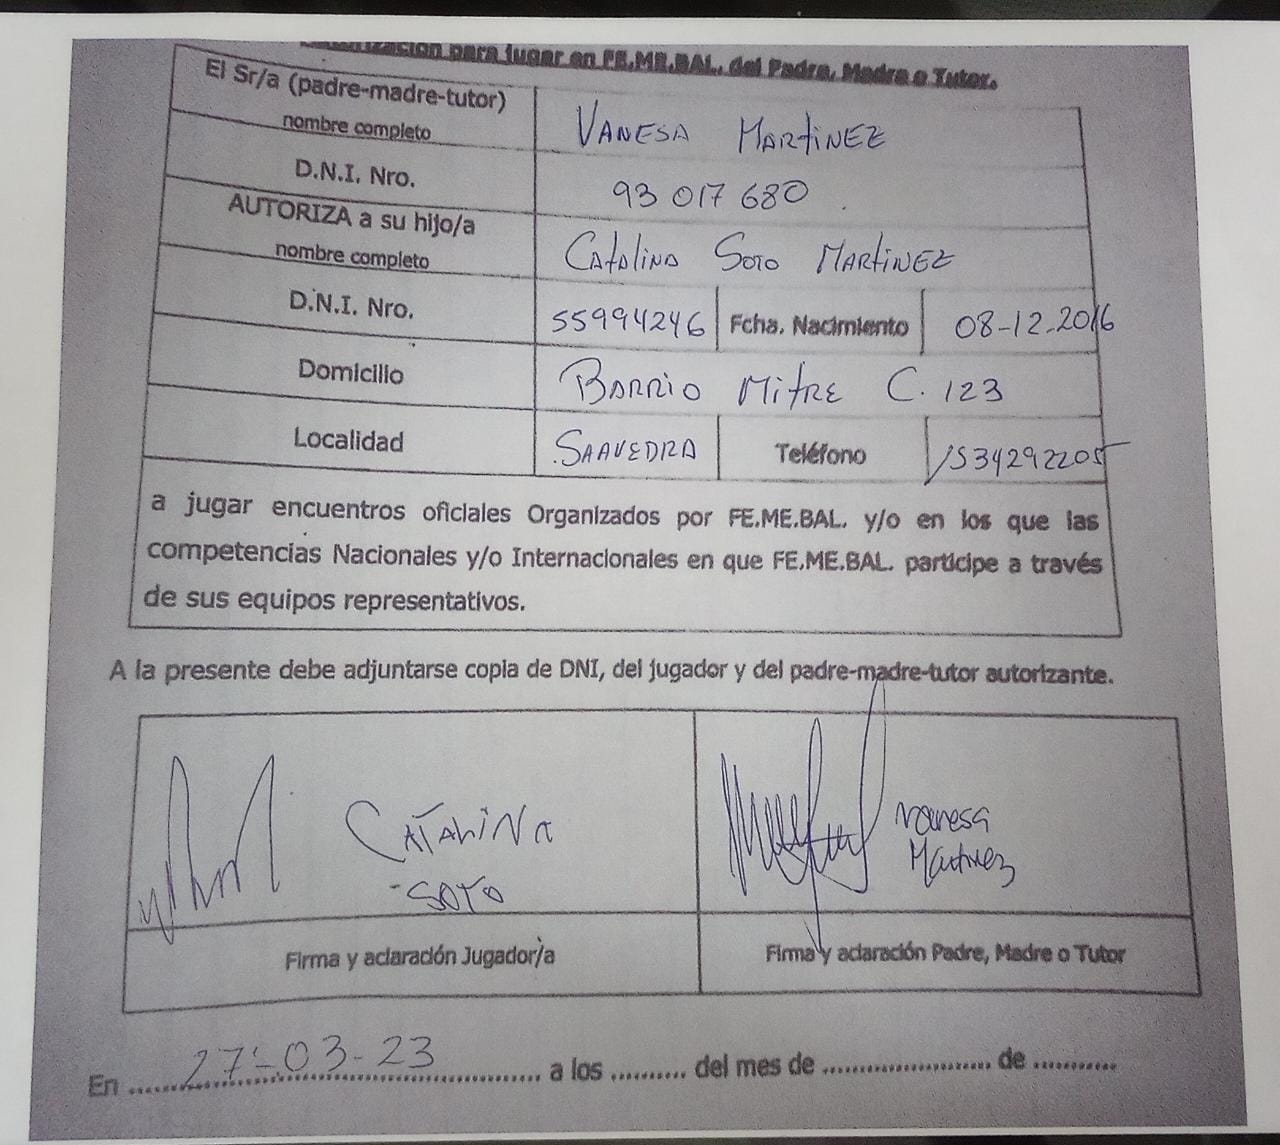 para jugar en FE.ME.BAL. del Padre, Madre o Tutor.
El Sr/a (padre-madre-tutor)
nombre completo
VANESA MARTINEZ
D.N.I. Nro.
93 017 680
AUTORIZA a su hijo/a
nombre completo
CATALINA SOTO MARTINEZ
D.N.I. Nro.
55994246
Fcha. Nacimiento
08-12-2016
Domicilio
BARRIO MITRE C. 123
Localidad
SAAVEDRA
Teléfono
1534292205
a jugar encuentros oficiales Organizados por FE.ME.BAL. y/o en los que las
competencias Nacionales y/o Internacionales en que FE.ME.BAL. participe a través
de sus equipos representativos.
A la presente debe adjuntarse copia de DNI, del jugador y del padre-madre-tutor autorizante.
CATALINA
SOTO
Vanesa
Martinez
Firma y aclaración Jugador/a
Firma y aclaración Padre, Madre o Tutor
En 27-03-23 a los .......... del mes de ....................... de ...........